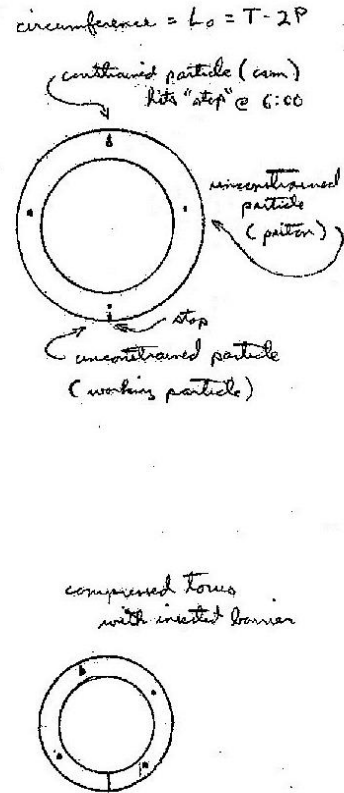 circumference = L₀ = T - 2P
constrained particle (com)
hits "stop" @ 6:00
unconstrained
particle
(piston)
stop
unconstrained particle
(working particle)
compressed torus
with inserted barrier